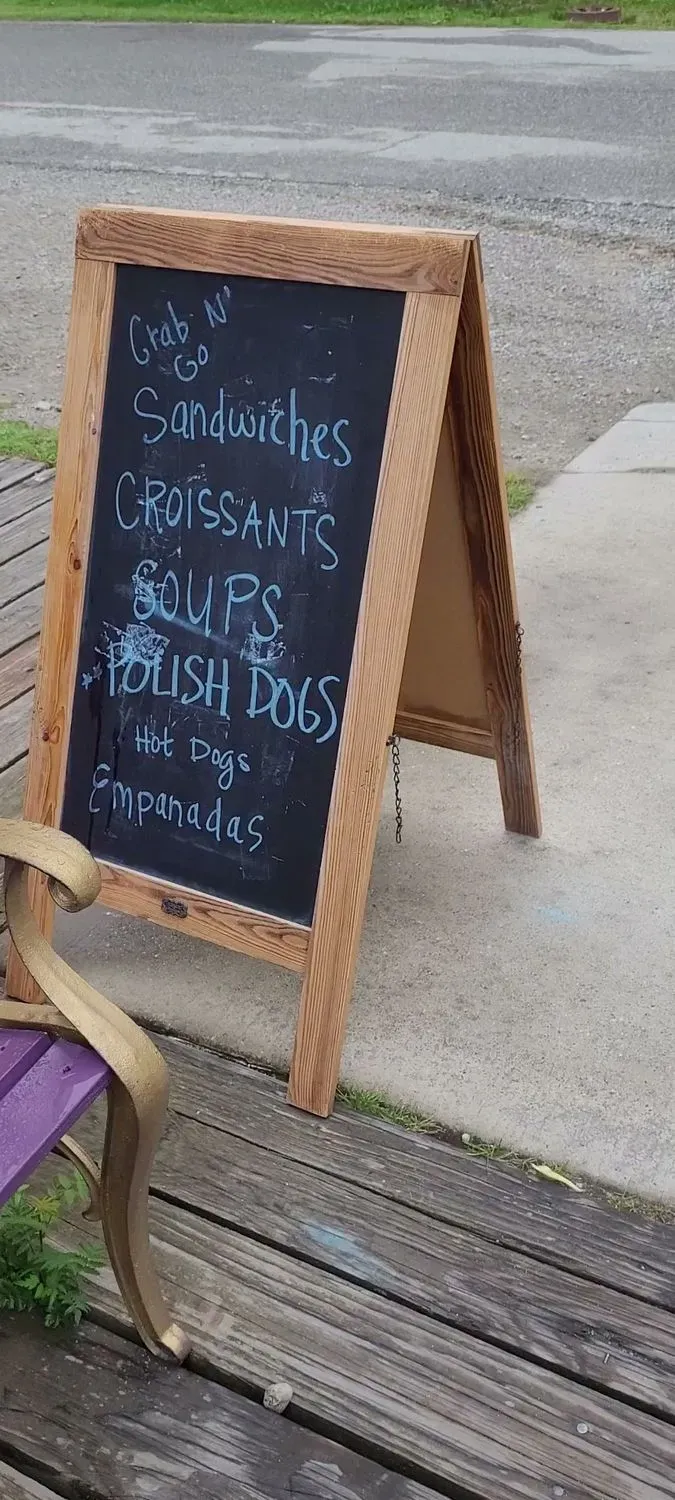 Grab N'
Go
Sandwiches
CROISSANTS
SOUPS
*POLISH DOGS
Hot Dogs
Empanadas